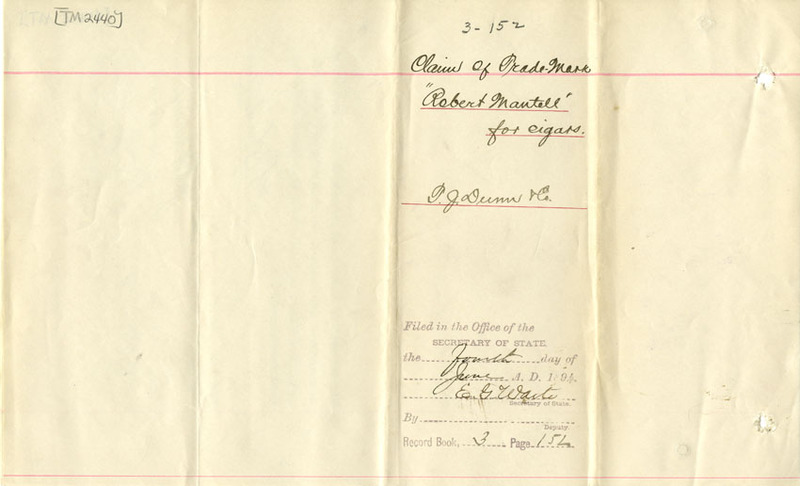 [TM2440]
3-152
Claim of Trade-Mark
"Robert Mantell"
for cigars.
P. J. Dunn & Co.
Filed in the Office of the
SECRETARY OF STATE.
the fourth day of
June A. D. 189
E G Waite
Secretary of State.
By
Deputy.
Record Book, 3 Page 152